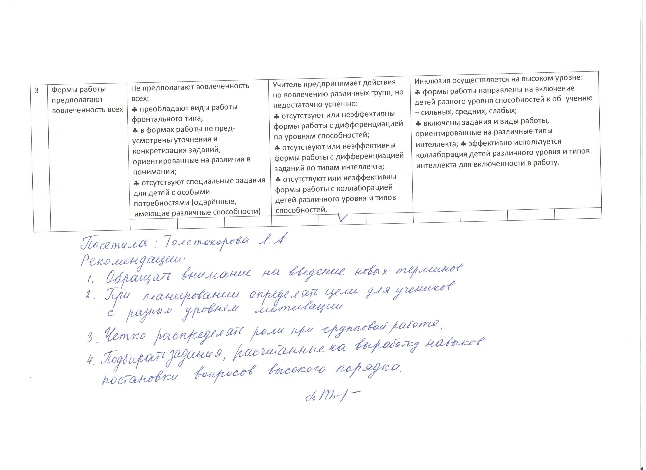 3
Формы работы
предполагают
вовлеченность всех
Не предполагают вовлеченность
всех:
♣ преобладают виды работы
фронтального типа;
♣ в формах работы не пред-
усмотрены уточнения и
конкретизация заданий,
ориентированные на различия в
понимании;
♣ отсутствуют специальные задания
для детей с особыми
потребностями (одарённые,
имеющие различные способности)
Учитель предпринимает действия
по вовлечению различных групп, но
недостаточно успешно:
♣ отсутствуют или неэффективны
формы работы с дифференциацией
по уровням способностей;
♣ отсутствуют или неэффективны
формы работы с дифференциацией
заданий по типам интеллекта;
♣ отсутствуют или неэффективны
формы работы с коллаборацией
детей различного уровня и типов
способностей.
Инклюзия осуществляется на высоком уровне:
♣ формы работы направлены на включение
детей разного уровня способностей к об учению
– сильных, средних, слабых;
♣ включены задания и виды работы,
ориентированные на различные типы
интеллекта; ♣ эффективно используется
коллаборация детей различного уровня и типов
интеллекта для включенности в работу.
Посетила: Толстокорова Л.А
Рекомендации:
1. Обращать внимание на введение новых терминов
2. При планировании определять цели для учеников
с разным уровнем мотивации
3. Четко распределять роли при групповой работе.
4. Подбирать задания, расчитанные на выработку навыков
постановки вопросов высокого порядка.